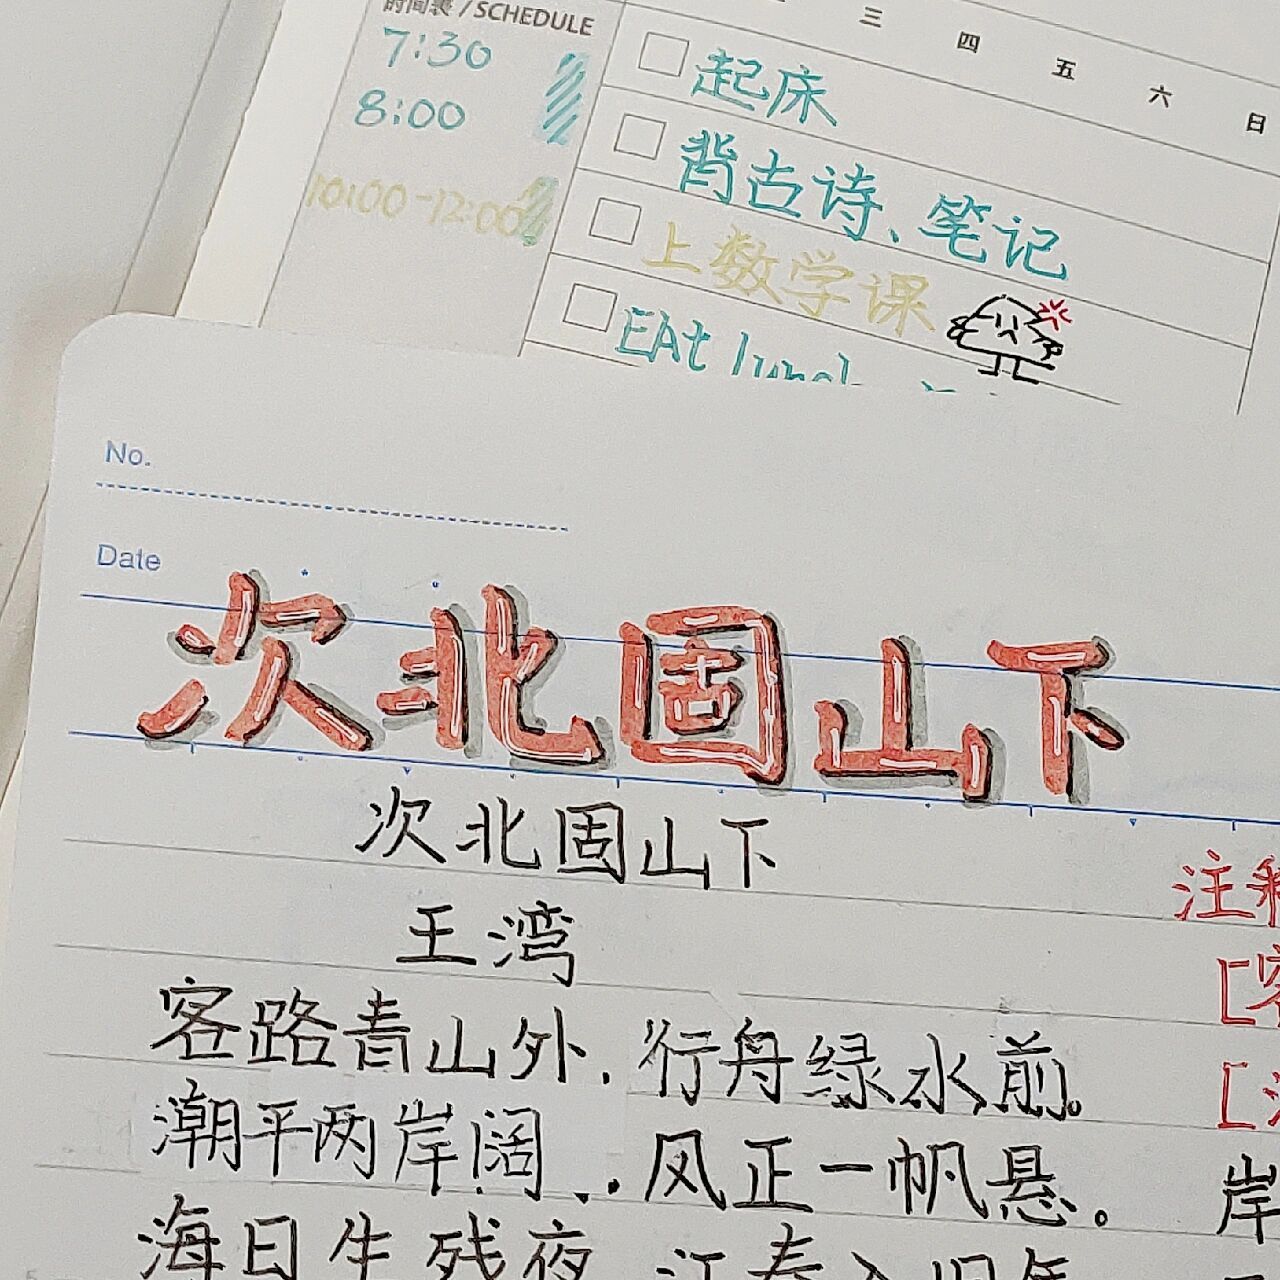 时间表 / SCHEDULE
三 四 五 六 日
7:30 起床
8:00 背古诗、笔记
10:00-12:00 上数学课
EAt lunch
No.
Date
次北固山下
次北固山下
王湾
客路青山外,行舟绿水前。
潮平两岸阔,风正一帆悬。
海日生残夜 江春入旧年
注释
[客
[
岸